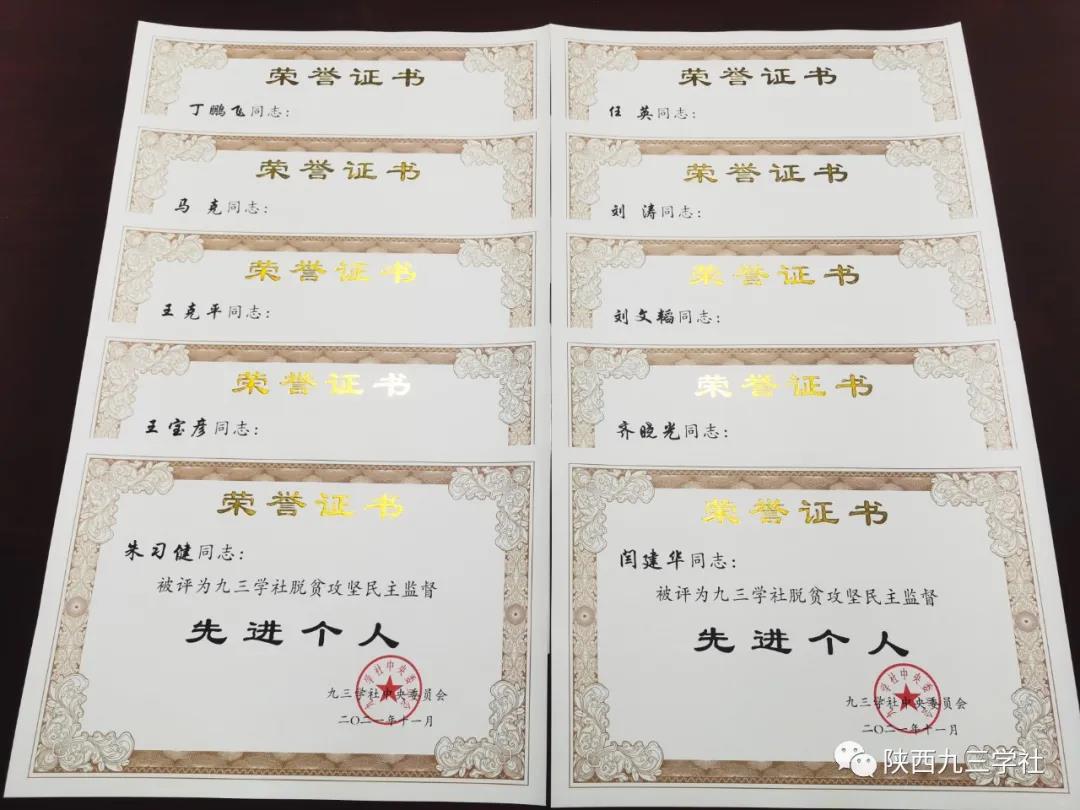 荣誉证书
丁鹏飞同志：
荣誉证书
马 克同志：
荣誉证书
王克平同志：
荣誉证书
王宝彦同志：
荣誉证书
朱习健同志：
被评为九三学社脱贫攻坚民主监督
先进个人
九三学社中央委员会
二〇二一年十一月
荣誉证书
任 英同志：
荣誉证书
刘 涛同志：
荣誉证书
刘文韬同志：
荣誉证书
齐晓光同志：
荣誉证书
闫建华同志：
被评为九三学社脱贫攻坚民主监督
先进个人
九三学社中央委员会
二〇二一年十一月
陕西九三学社